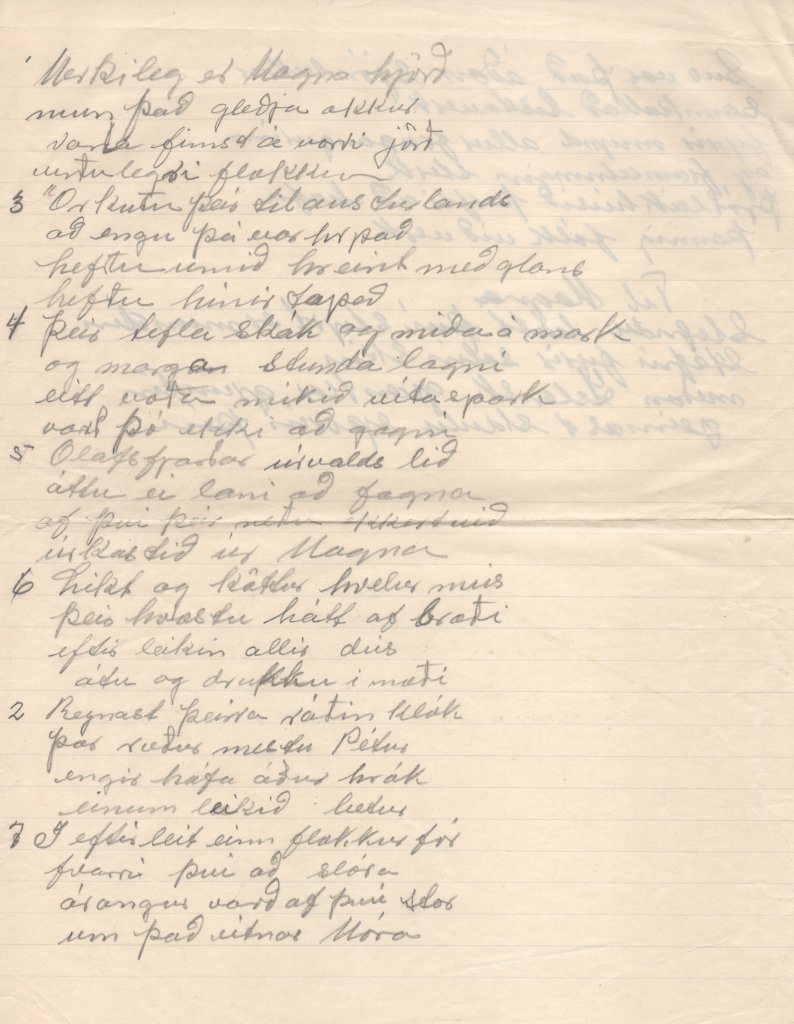 1 Merkileg er Magna hjörð
mun það gleðja okkur
varla finst á vorri jörð
virðulegri flokkur
3 Orkuðu þeir til austurlands
að engu þá var hrpað
heftu unnið hreint með glans
hefðu hinir tapað
4 þeir tefla skák og miða á mark
og margan stunda lagni
eitt voða mikið vítaspark
varð þó ekki að gagni
5 Olafsfjarðar úrvalds lið
áttu ei lani að fagna
af þvi þeir réðu ekkert við
úrkastið úr Magna
6 Likt og köttur hvelur mús
þeir hvæstu hátt af bræði
eftir leikin allir dús
átu og drukku i næði
2 Regnast þeirra ráðin klók
þar ræður mestu Pétur
engir háfa áður hrók
einum leikið betur
7 I eftirleit einn flokkur fór
fvarri því að slóra
árangur varð af þvi stor
um það vitnar Móra